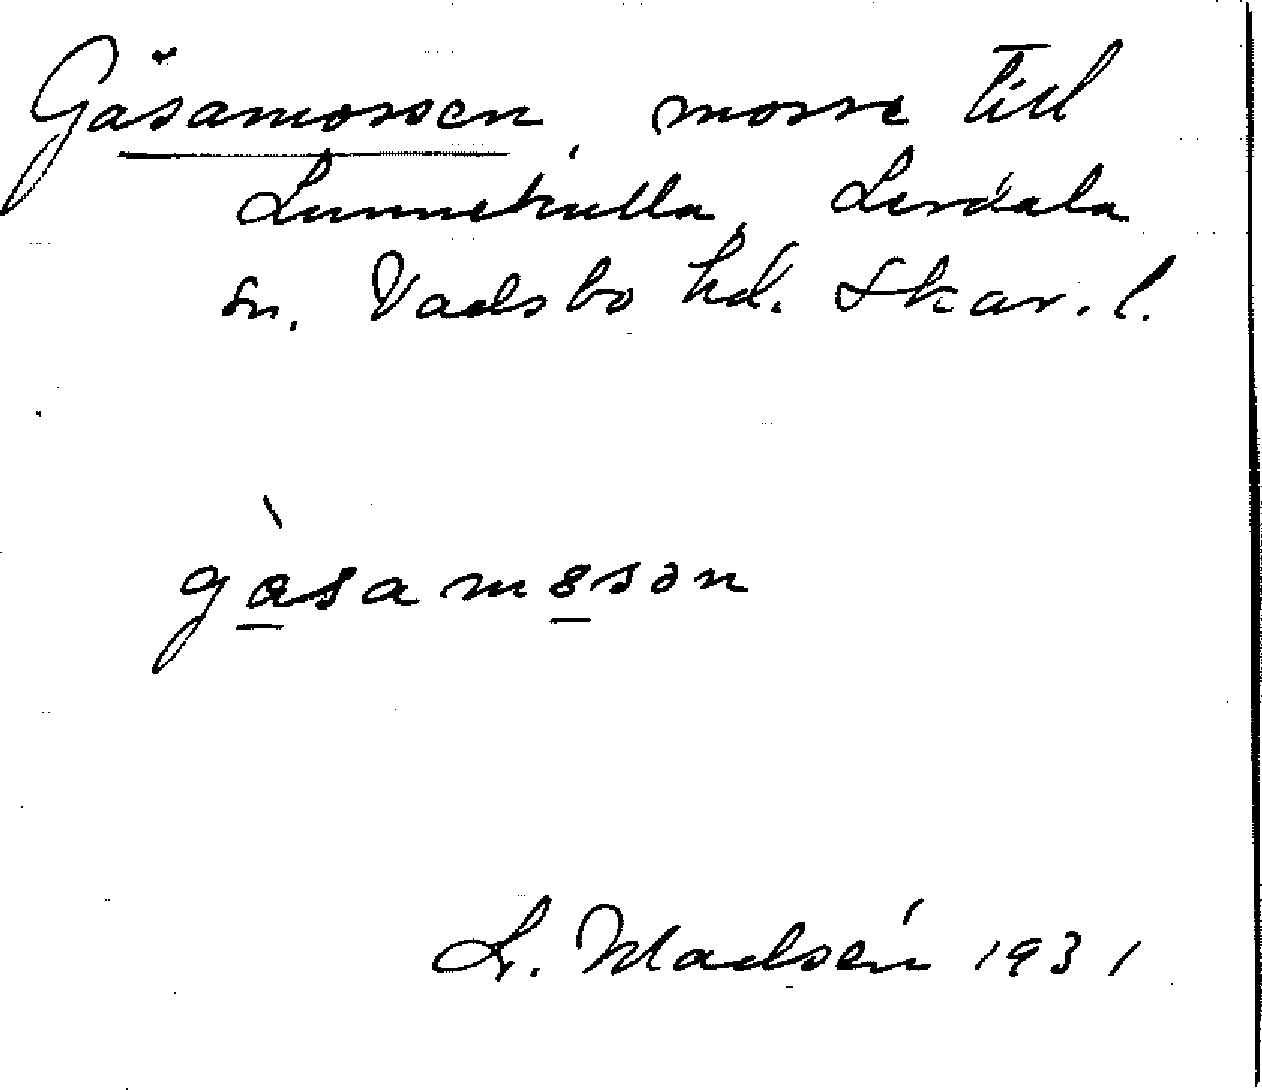 Gåsamossen, mosse till
Lunnekulla, Lerdala
sn. Vadsbo hd. Skar. l.
gåsamosən
L. Madsén 1931